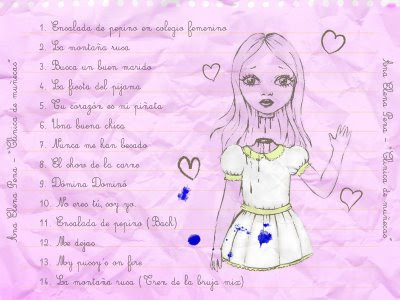 1. Ensalada de pepino en colegio femenino
2. La montaña rusa
3. Busca un buen marido
4. La fiesta del pijama
5. Tu corazón es mi piñata
6. Una buena chica
7. Nunca me han besado
8. El show de la carne
9. Domina Dominó
10. No eres tú, soy yo.
11. Ensalada de pepino (Bach)
12. Me dejas
13. My pussy's on fire
14. La montaña rusa (Tren de la bruja mix)
Ana Elena Pena - "Clínica de muñecas"
Ana Elena Pena - "Clínica de muñecas"